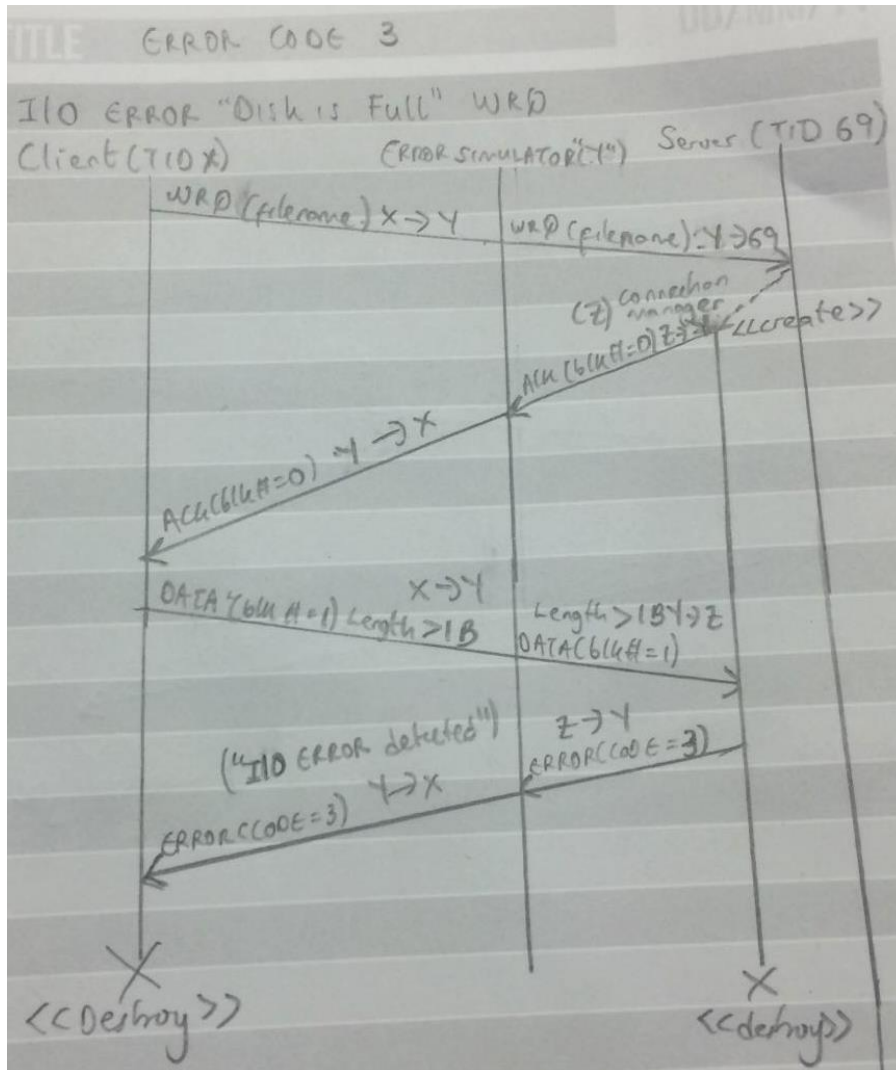 TITLE ERROR CODE 3
DD/MM/YY
I/O ERROR "Disk is Full" WRQ
Client (TID X) ERROR SIMULATOR("Y") Server (TID 69)
WRQ (filename) X → Y
WRQ (filename): Y → 69
(Z) Connection
manager
<<create>>
ACK (blk#=0) Z → Y
ACK (blk#=0) Y → X
X → Y
DATA (blk #=1) Length > 1B
Length > 1B Y → Z
DATA (blk#=1)
Z → Y
ERROR (CODE = 3)
("I/O ERROR detected")
Y → X
ERROR (CODE = 3)
X
<<Destroy>>
X
<<destroy>>